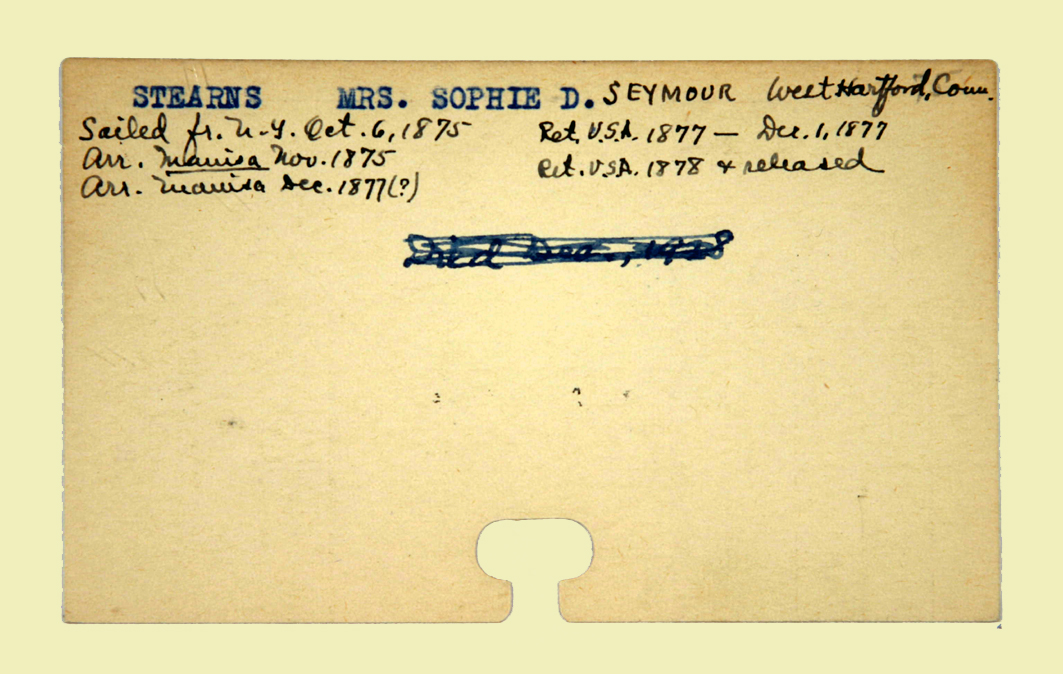 STEARNS MRS. SOPHIE D. SEYMOUR West Hartford, Conn.
Sailed fr. N.Y. Oct. 6, 1875
Ret. U.S.A. 1877 — Dec. 1, 1877
Arr. Manisa Nov. 1875
Ret. U.S.A. 1878 & released
Arr. Manisa Dec. 1877(?)
Died Dec., 1928